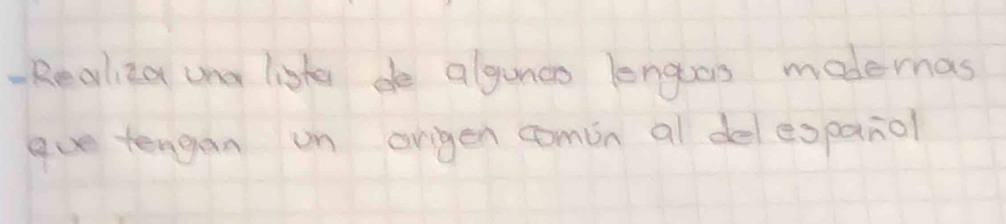 -Realiza una lista de algunas lenguas modernas
que tengan un origen común al del español